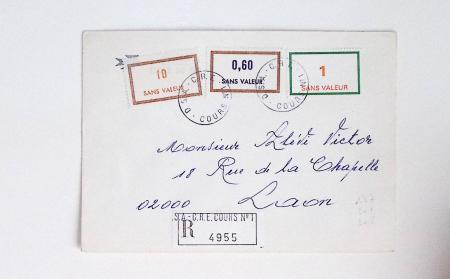 10
SANS VALEUR
0,60
SANS VALEUR
1
SANS VALEUR
O.S.A. - C.R.E.
COURS
O.S.A. - C.R.E.
COURS N° 1
Monsieur Victor
18 Rue de la Chapelle
02000 Laon
S.A.-C.R.E. COURS N° 1
R
4955